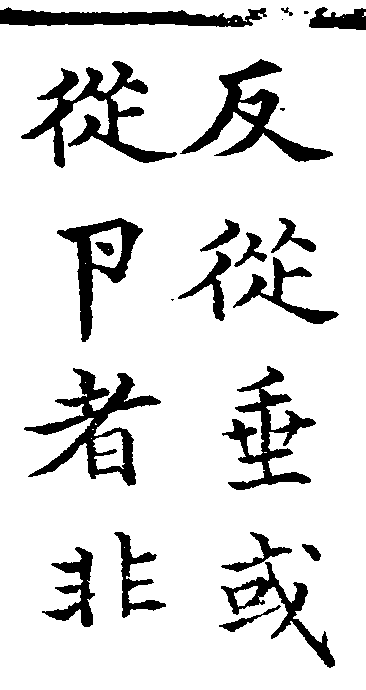 反從垂或
從卪者非